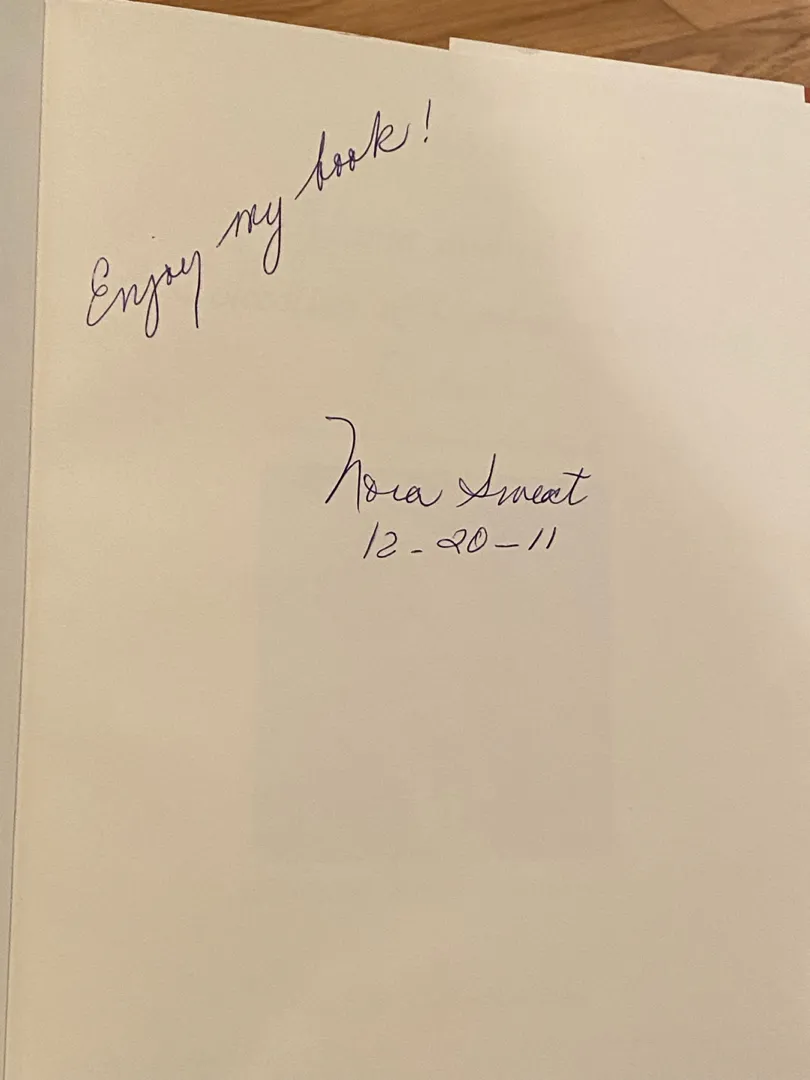 Enjoy my book!
Nora Sweat
12-20-11